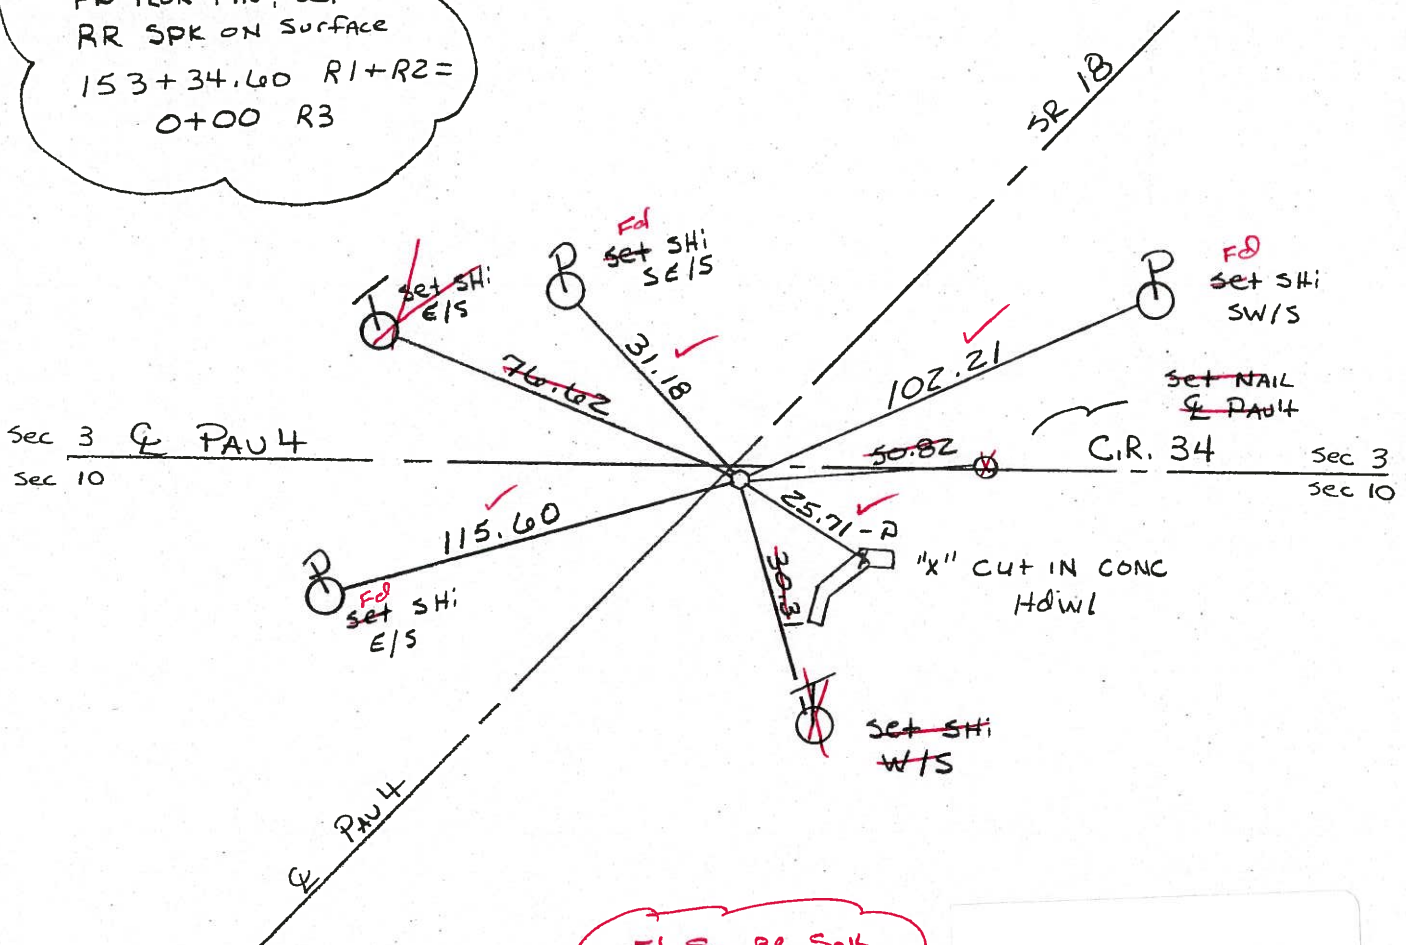 RR SPK ON SurFACE
153+34.60 R1+R2=
0+00 R3
SR 18
Fd
set SHi
SE/S
set SHi
E/S
Fd
set SHi
SW/S
31.18
76.62
102.21
set NAIL
℄ PAV4
50.82
Sec 3 ℄ PAV4
Sec 10
C.R. 34
Sec 3
Sec 10
115.60
25.71-P
30.31
"X" CUT IN CONC
Hdwl
Fd
set SHi
E/S
set SHi
W/S
℄ PAV4